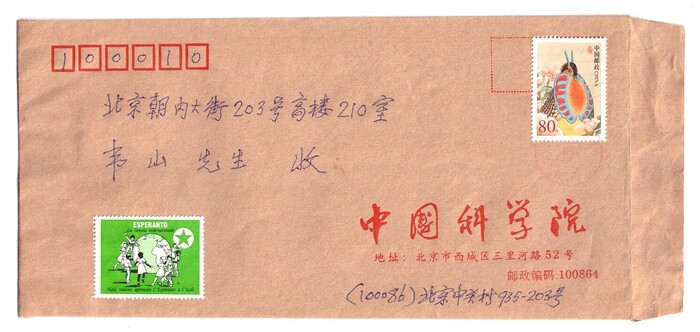 100010
中国邮政 CHINA
80分
北京朝内大街203号高楼210室
韦山 先生 收
ESPERANTO
La langue internationale
Nous voulons apprendre l'Esperanto à l'école
中国科学院
地址：北京市西城区三里河路52号
邮政编码:100864
(100086)北京中关村935-203号